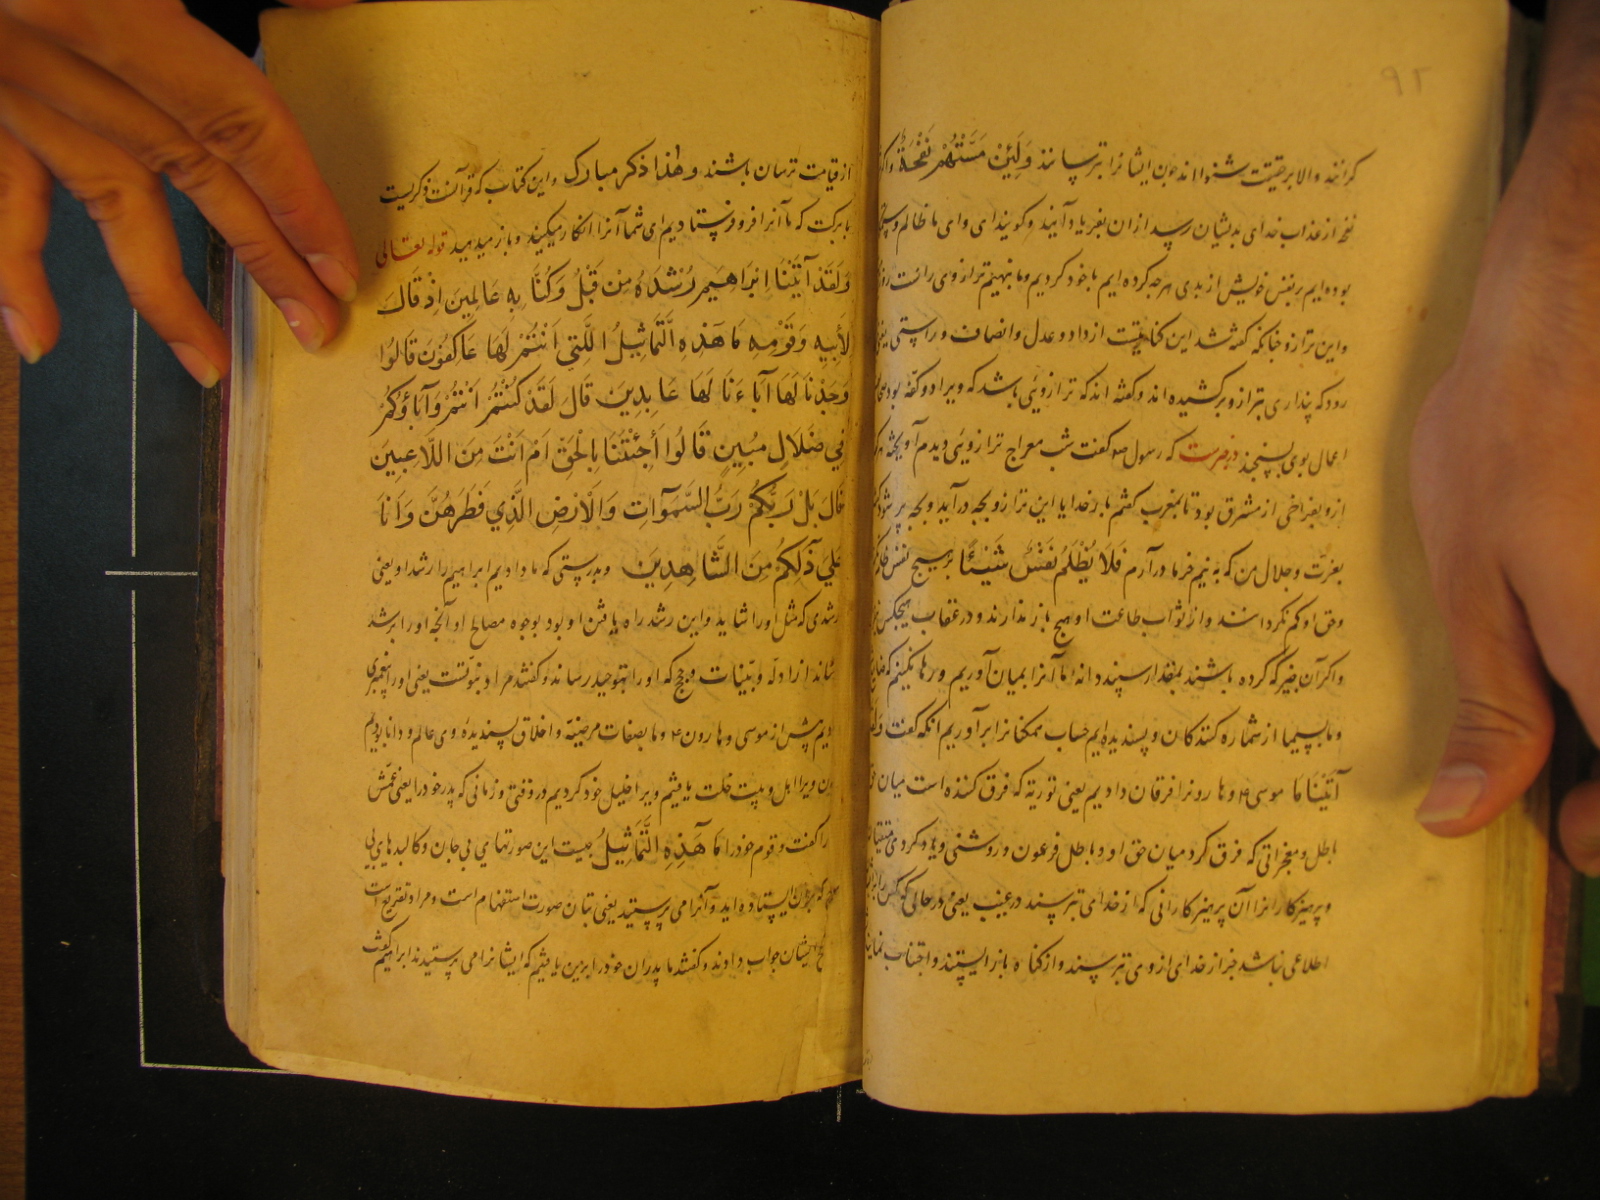 ۹۲
کرانند والا بر حقیقت شنوا اند چون ایشانرا بترسانند وَلَئِنْ مَسَّتْهُمْ نَفْحَةٌ واکر
نفحه از عذاب خدای بدیشان رسد ازان بفریاد آیند و کویند ای وای ما ظالم
بوده ایم بر نفس خویش از بدی هرچه کرده ایم با خود کردیم وما بنهیم ترازوی راست
واین ترازو چنانکه کفته شد این کنایتست از داد و عدل و انصاف و راستی یعنی
رود که پنداری بترازو برکشیده اند و کفته اند که ترازوئی باشد که ویرا دو کفه بود
اعمال بوی بسنجند در خبرست که رسول صه کفت شب معراج ترازوئی دیدم آویخته
ازو بفراخی از مشرق بود تا بمغرب کفتم بار خدایا این ترازو بچه درآید و بچه پر شود
بعزّت و جلال من که به نیم خرما در آرم فَلَا تُظْلَمُ نَفْسٌ شَيْئًا بر هیچ نفس
وحق او کم نکردانند واز ثواب طاعت او هیچ باز ندارند و در عقاب هیچکس
واکر آن چیز که کرده باشند بمقدار سپند دانه ما آنرا بمیان آوریم و رها نکنیم که
وما بسیم از شماره کنندکان و پسندیده ایم حساب ممکنانرا بر آوریم آنکه کفت
آتَيْنَا ما موسی و هارونرا فرقان دادیم یعنی توریة که فرق کننده است میان حق
باطل و معجزاتی که فرق کرد میان حق او و باطل فرعون و روشنی و یاد کردی متقیانرا
و پرهیزکارانرا آن پرهیزکارانی که از خدای بترسند در غیب یعنی در حالی که کس را
اطلاعی نباشد جز از خدای ازوی بترسند و از کناه باز ایستند و اجتناب نمایند
از قیامت ترسان باشند وهٰذا ذكر مبارك واین کتاب که قرآنست ذکریست
با برکت که ما آنرا فرو فرستادیم ای شما آنرا انکار میکنید و باز میدهید قوله تعالی
وَلَقَدْ آتَيْنَا اِبْرَاهِيمَ رُشْدَهُ مِن قَبْلُ وَكُنَّا بِهِ عَالِمِينَ اِذْ قَالَ
لِأَبِيهِ وَقَوْمِهِ مَا هَذِهِ التَّمَاثِيلُ الَّتِي اَنْتُمْ لَهَا عَاكِفُونَ قَالُوا
وَجَدْنَا لَهَا آبَاءَنَا لَهَا عَابِدِينَ قَالَ لَقَدْ كُنْتُمْ اَنْتُمْ وَآبَاؤُكُمْ
فِي ضَلَالٍ مُبِينٍ قَالُوا أَجِئْتَنَا بِالْحَقِّ اَمْ اَنْتَ مِنَ اللَّاعِبِينَ
قَالَ بَلْ رَبُّكُمْ رَبُّ السَّمَوَاتِ وَالْاَرْضِ الَّذِي فَطَرَهُنَّ وَاَنَا
عَلَي ذَٰلِكُمْ مِنَ الشَّاهِدِينَ وبدرستی که ما دادیم ابراهیم را رشد او یعنی
رشدی که مثل اورا شاید واین رشد راه یافتن او بود بوجوه مصالح او آنچه اورا برشد
رساند از ادله و بیّنات و حجج که اورا بتوحید رساند و کفتند مراد نبوّتست یعنی اورا پیغمبری
دادیم پیش از موسی و هارون ۴ وما بصفات مرضیّه و اخلاق پسندیدهٔ وی عالم و دانا بودیم
چون ویرا اهل و بیت خلت یافتیم ویرا خلیل خود کردیم در وقتی و زمانی که پدر خودرا یعنی عمّش
را کفت و قوم خودرا مَا هَذِهِ التَّمَاثِيلُ چیست این صورتهای بی جان و کالبدهای بی
که بر آن ایستاده اید و آنرا می پرستید یعنی بتان صورت استفهام است و مراد تقریع است
ایشان جواب دادند و کفتند ما پدران خودرا برین یافتیم که ایشانرا می پرستیدند ابراهیم کفت